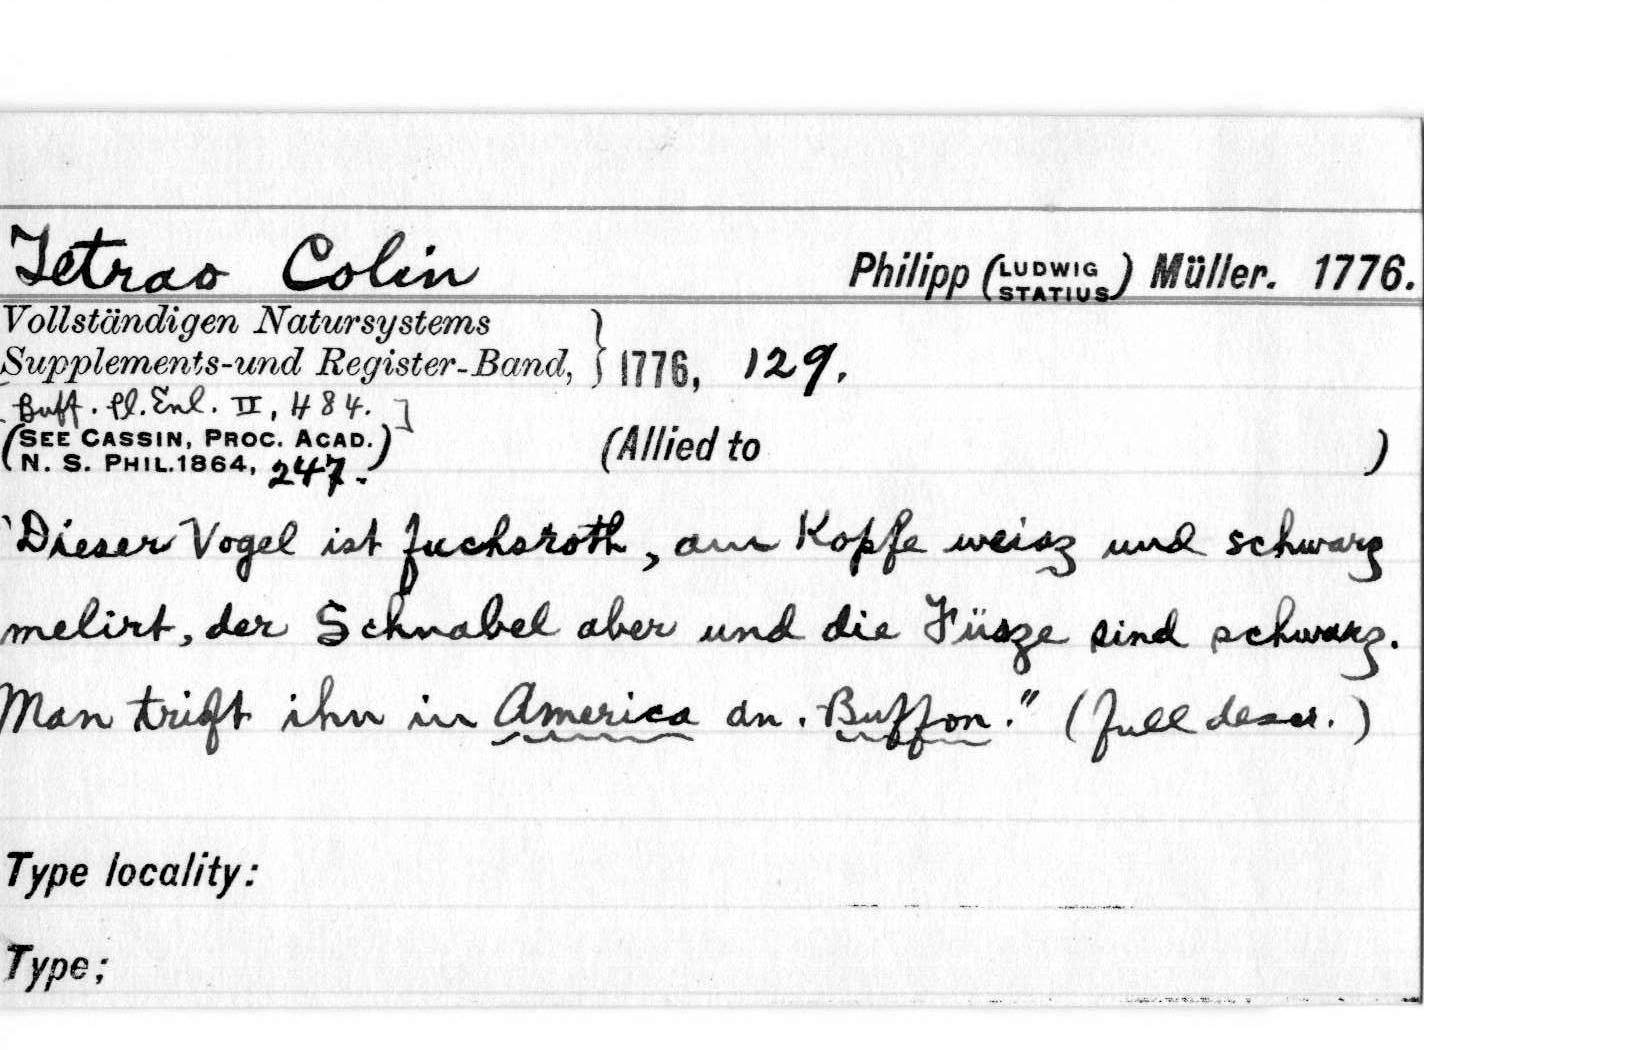 Tetrao Colin Philipp (LUDWIG STATIUS) Müller. 1776.
Vollständigen Natursystems
Supplements-und Register-Band, } 1776, 129.
[Buff. Pl. Enl. II, 484.]
(SEE CASSIN, PROC. ACAD.
N. S. PHIL. 1864, 247.) (Allied to )
"Dieser Vogel ist fuchsroth, am Kopfe weisz und schwarz
melirt, der Schnabel aber und die Füsze sind schwarz.
Man trift ihn in America an. Buffon." (full descr.)
Type locality:
Type;